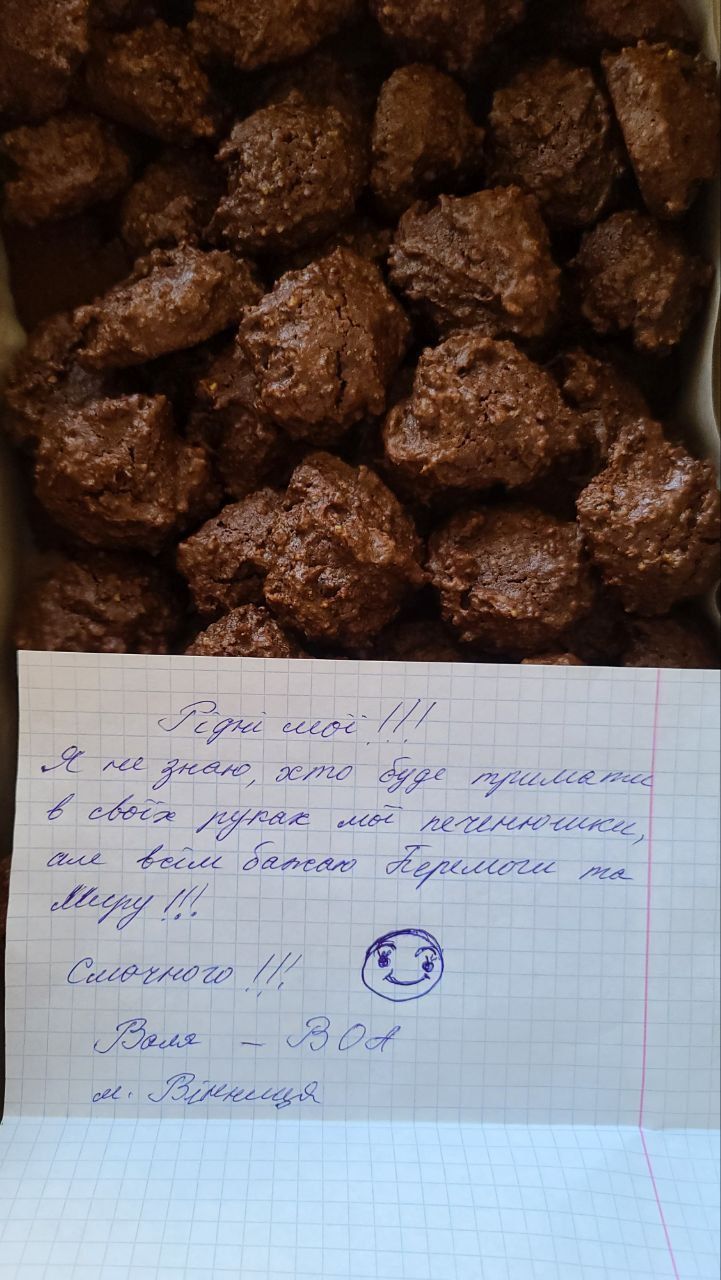 Рідні мої!!!
Я не знаю, хто буде тримати
в своїх руках мої печенюшки,
але всім бажаю Перемоги та
Миру!!!
Смачного!!!
Валя – ВОА
м. Вінниця